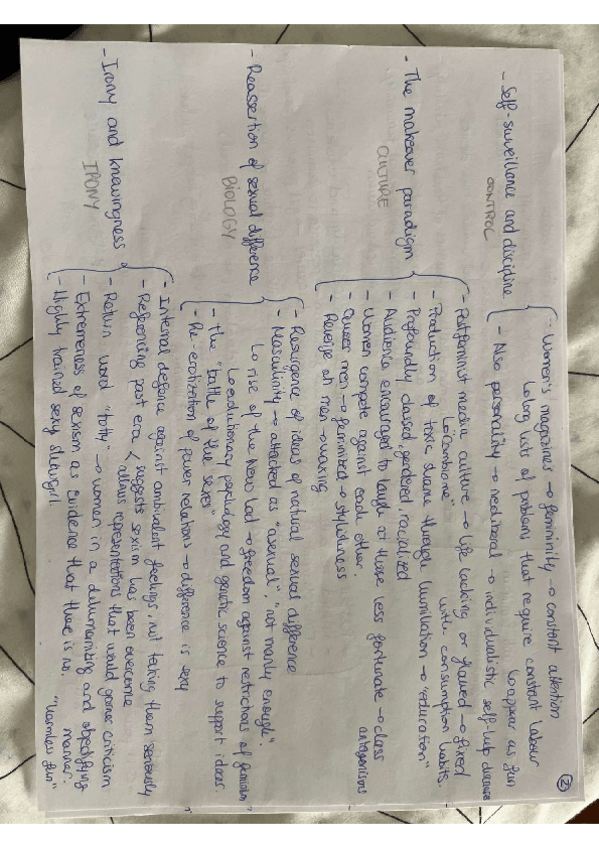 ②
- Self-surveillance and discipline
CONTROL
- Women's magazines → femininity → constant attention
↳ long lists of problems that require constant labour
↳ appear as fun
- Also personality → neoliberal → individualistic self-help
- The makeover paradigm
CULTURE
- Postfeminist media culture → life lacking or flawed → fixed
with consumption habits.
- Production of toxic shame through humiliation → "education"
- Profoundly classed, gendered, racialized
- Audience encouraged to laugh at those less fortunate → class
antagonisms
- Women compete against each other.
- Queer men → feminized → stylishness
- Reverse on men → waxing
- Reassertion of sexual difference
BIOLOGY
- Resurgence of ideas of natural sexual difference
- Masculinity → attacked as "asexual", "not manly enough".
↳ rise of the New Lad → freedom against restrictions of feminism
↳ evolutionary psychology and genetic science to support ideas.
- the "battle of the sexes"
- Re-erotization of power relations → difference is sexy
- Irony and knowingness
IRONY
- Internal defence against ambivalent feelings, not taking them seriously
- Referencing past era < suggests sexism has been overcome
allows representations that would garner criticism
- Return word "totty" → women in a dehumanizing and objectifying
manner.
- Extremeness of sexism as evidence that there is no.
"harmless fun"
- Highly trained sexy